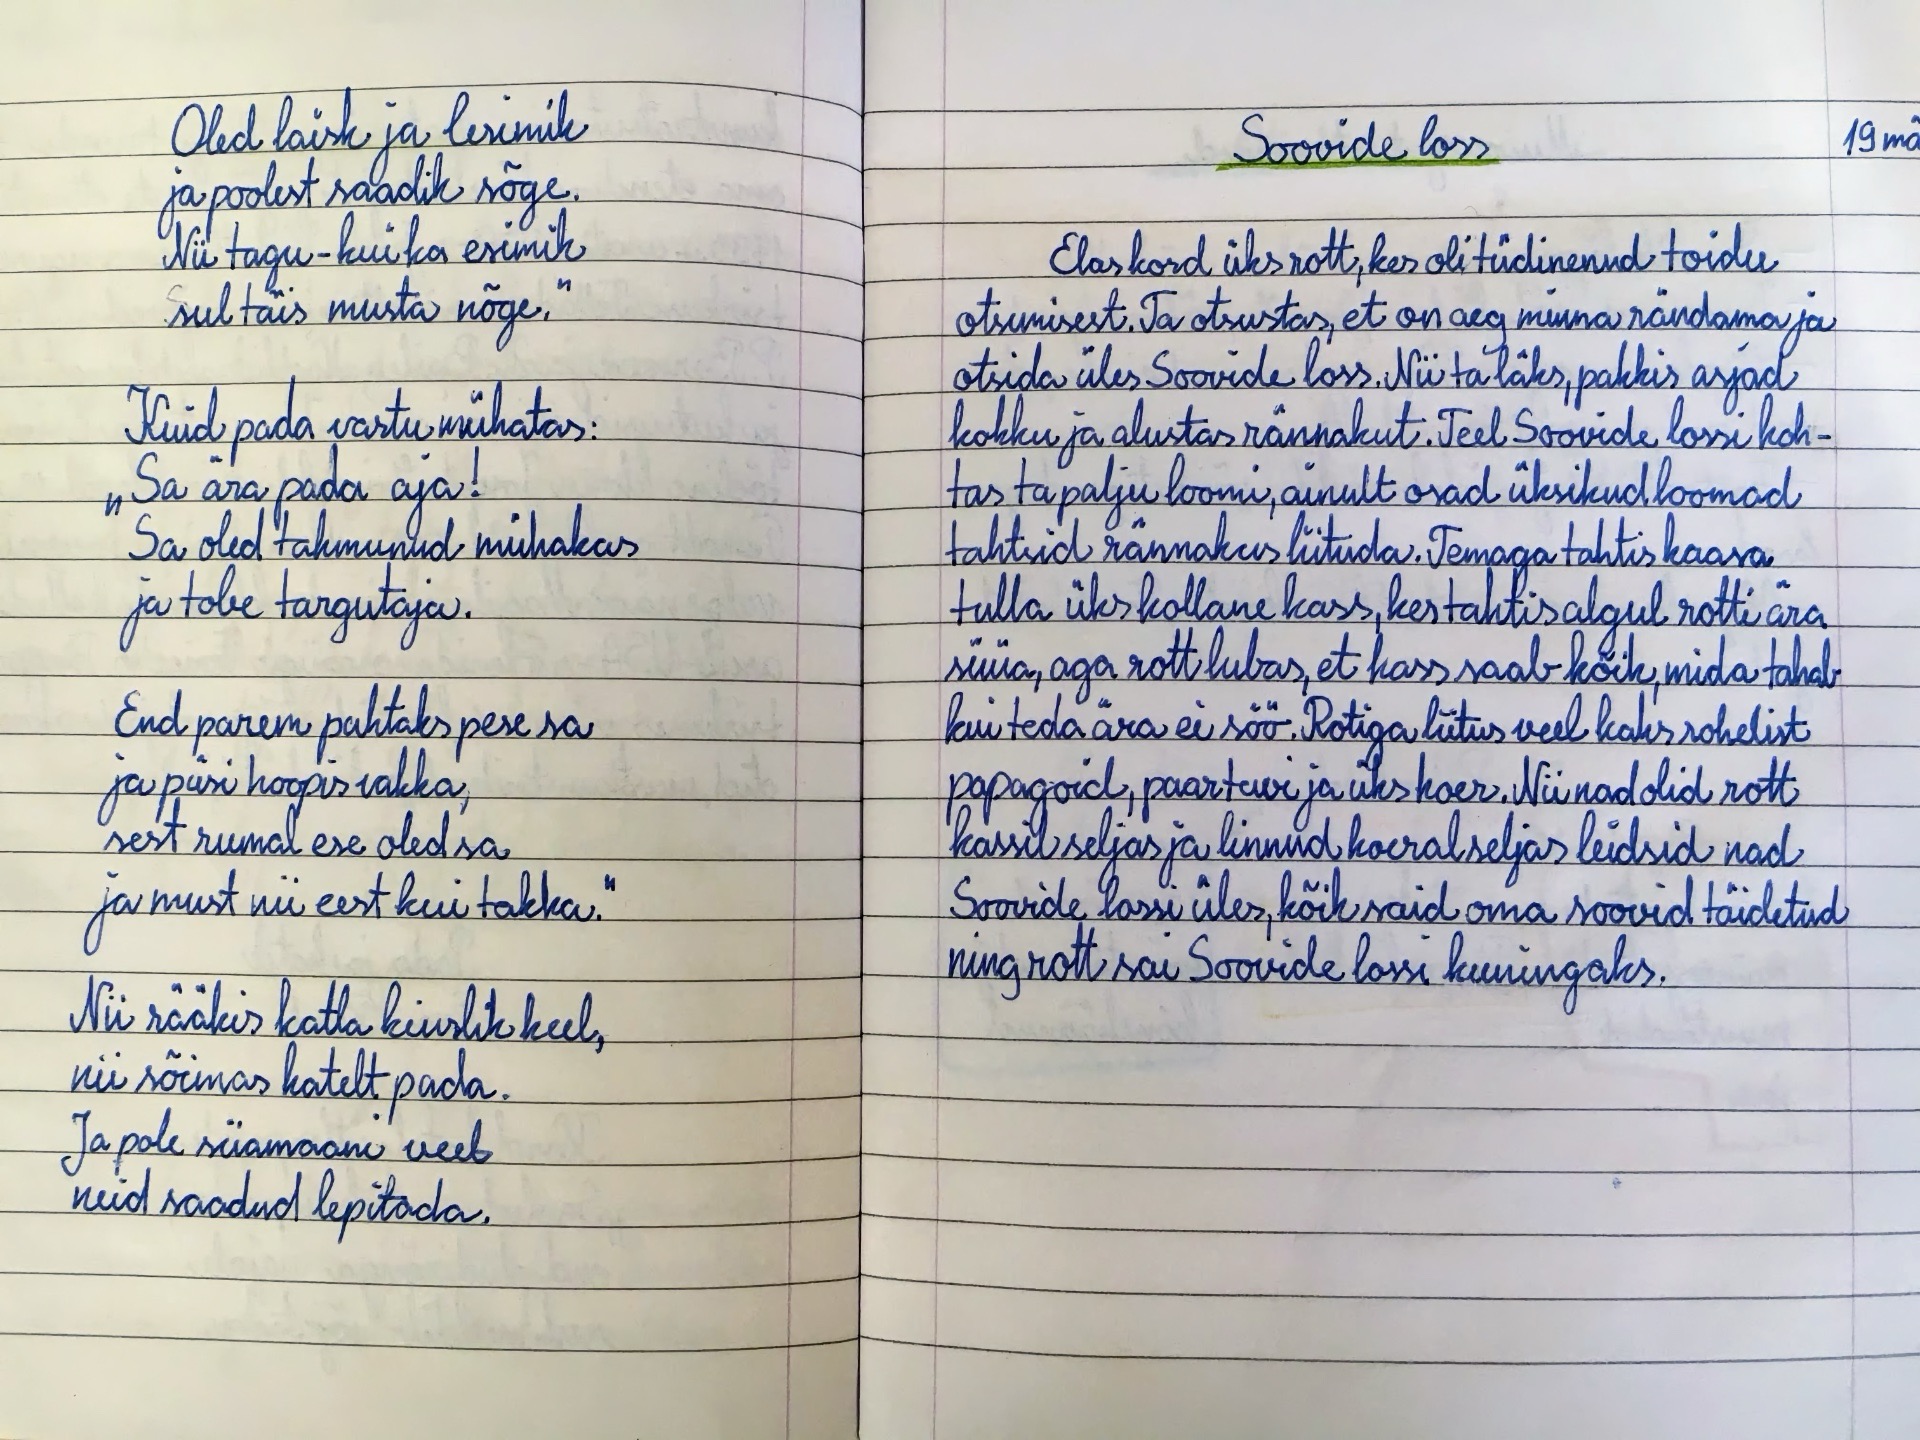 Oled laisk ja lesimik
ja poolest saadik sõge.
Nii tagu-kui ka esimik
sul täis musta nõge."
Kuid pada vastu mühatas:
„Sa ära pada aja!
Sa oled tahmunud mühakas
ja tobe targutaja.
End parem pahtaks pese sa
ja püsi hoopis vakka,
sest rumal ese oled sa
ja must nii eest kui takka."
Nii rääkis katla kiuslik keel,
nii sõimas katelt pada.
Ja pole siiamaani veel
neid saadud lepitada.
Soovide loss
19 mä
Elas kord üks rott, kes oli tüdinenud toidu
otsimisest. Ta otsustas, et on aeg minna rändama ja
otsida üles Soovide loss. Nii ta läks, pakkis asjad
kokku ja alustas rännakut. Teel Soovide lossi koh-
tas ta palju loomi, ainult osad üksikud loomad
tahtsid rännakus liituda. Temaga tahtis kaasa
tulla üks kollane kass, kes tahtis algul rotti ära
süüa, aga rott lubas, et kass saab kõik, mida tahab
kui teda ära ei söö. Rotiga liitus veel kaks rohelist
papagoid, paar tuvi ja üks koer. Nii nad olid rott
kassil seljas ja linnud koeral seljas leidsid nad
Soovide lossi üles, kõik said oma soovid täidetud
ning rott sai Soovide lossi kuningaks.